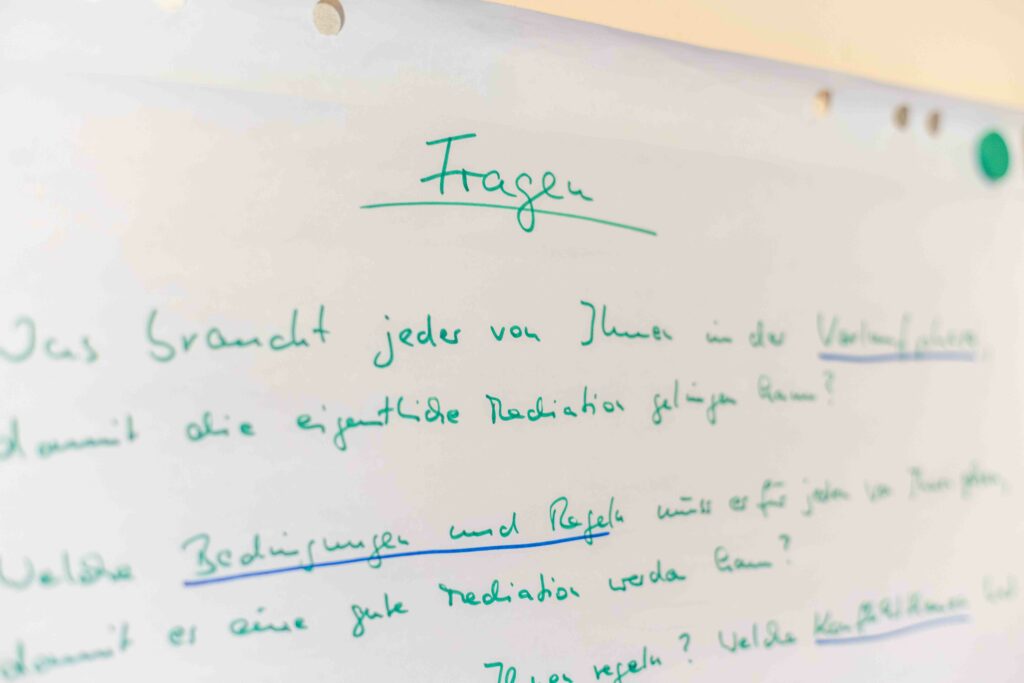 Fragen
Was braucht jeder von Ihnen in der Vorlaufphase,
damit die eigentliche Mediation gelingen kann?
Welche Bedingungen und Regeln muss es für jeden von Ihnen geben,
damit es eine gute Mediation werden kann?
Ihnen regeln? Welche